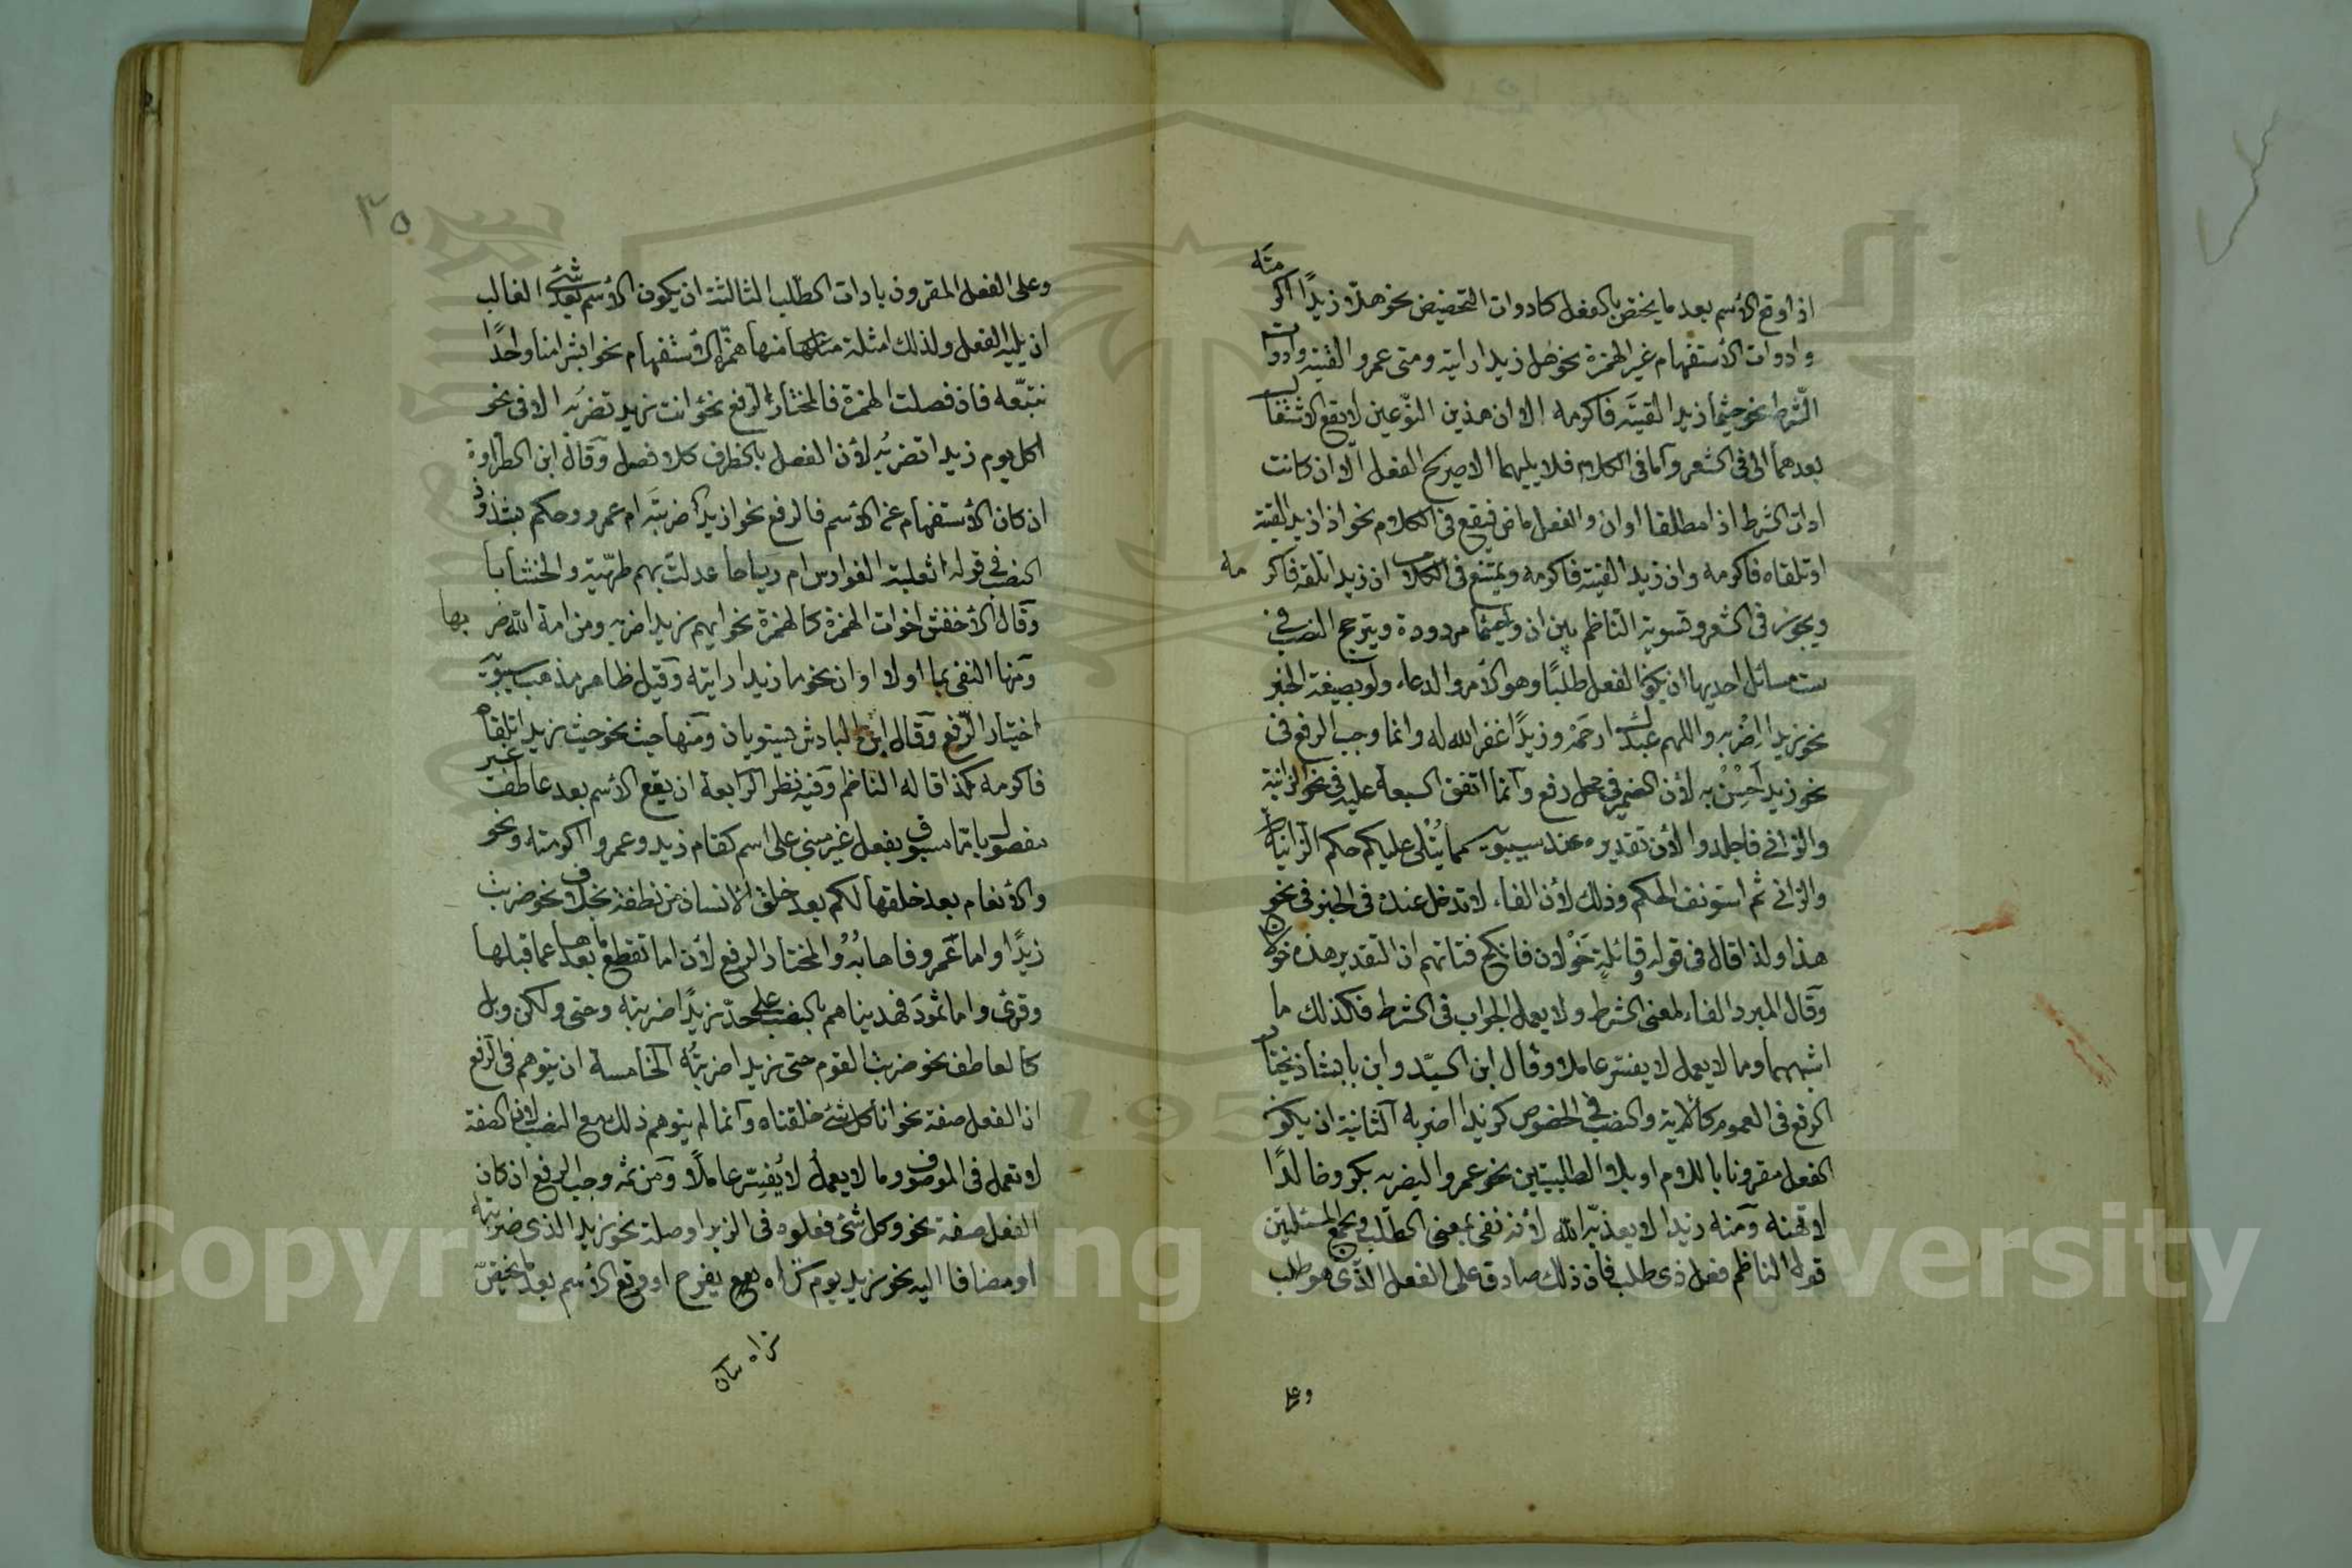 اذا وقع الأسم بعد ما يختص بالفعل كادوات التحضيض نحو هلا زيدا اكرمته
وادوات الأستفهام غير الهمزة نحو هل زيدا رايته ومتى عمروا لقيته وادوات
الشرط نحو حيثما زيدا لقيته فاكرمه الا ان هذين النوعين لا يقع الاشتغال
بعدهما الا فى الشعر وأما فى الكلام فلا يليهما الا صريح الفعل الا ان كانت
ادات الشرط اذا مطلقا او ان والفعل ماض فيقع فى الكلام نحو اذا زيدا لقيته
او تلقاه فاكرمه وان زيدا لقيته فاكرمه ويمتنع فى الكلام ان زيدا تلقه فاكرمه
ويجوز فى الشعر وتسوية الناظم بين ان وحيثما مردودة ويترجح النصب فى
ست مسائل احديها ان يكون الفعل طلبًا وهو الأمر والدعاء ولو بصيغة الخبر
نحو زيدا اضربه واللهم عبدك ارحمه وزيدًا غفر الله له وانما وجب الرفع فى
نحو زيد احسن به لأن الضمير فى محل رفع وانما اتفق السبعة عليه فى نحو الزانية
والزانى فاجلدوا لأن تقديره عند سيبويه مما يتلى عليكم حكم الزانية
والزانى ثم استونف الحكم وذلك لأن الفاء لا تدخل عنده فى الخبر فى نحو
هذا ولذا قال فى قوله وقائلة خولان فانكح فتاتهم ان التقدير هذه خولان
وقال المبرد الفاء لمعنى الشرط ولا يعمل الجواب فى الشرط فكذلك ما
اشبههما وما لا يعمل لا يفسر عاملا وقال ابن السيد وابن بابشاذ يختار
الرفع فى العموم كالآية والنصب فى الخصوص كزيدا اضربه الثانية ان يكون
الفعل مقرونا باللام او بلا الطلبيتين نحو عمروا ليضربه بكر وخالدًا
لا تهنه ومنه زيدا لا يعذبه الله لأنه نفى بمعنى الطلب ويجمع المسئلتين
قول الناظم فعل ذى طلب فان ذلك صادق على الفعل الذى هو طلب
وعلى
٣٥
وعلى الفعل المقرون بادات الطلب الثالثة ان يكون الأسم بعد شئ الغالب
ان يليه الفعل ولذلك امثلة منها همزة الأستفهام نحو ابشرا منا واحدًا
نتبعه فان فصلت الهمزة فالمختار الرفع نحو انت زيد تضربه الا فى نحو
اكل يوم زيدا تضربه لأن الفصل بالظرف كلا فصل وقال ابن الطراوة
ان كان الأستفهام عن الأسم فالرفع نحو ازيد ضربته ام عمرو وحكم بشذوذ
النصب فى قوله اثعلبة الفوارس ام رياحا عدلت بهم طهية والخشابا
وقال الأخفش اخوات الهمزة كالهمزة نحو ايهم زيدا ضربه ومن امة الله ضربها
ومنها النفى بما او لا او ان نحو ما زيدا رايته وقيل ظاهر مذهب سيبويه
اختيار الرفع وقال ابن الباذش يستويان ومنها حيث نحو حيث زيدا تلقاه
فاكرمه كذا قاله الناظم وفيه نظر الرابعة ان يقع الأسم بعد عاطف غير
مفصول باما مسبوق بفعل غير مبنى على اسم كقام زيد وعمروا اكرمته ونحو
والأنعام بعد خلقها لكم بعد خلق الانسان من نطفة بخلاف نحو ضربت
زيدًا واما عمرو فاهابه والمختار الرفع لأن اما تقطع ما بعدها عما قبلها
وقرئ واما ثمود فهديناهم بالنصب على حد زيدًا ضربته وحتى ولكن وبل
كالعاطف نحو ضربت القوم حتى زيدا ضربته الخامسة ان يتوهم فى الرفع
ان الفعل صفة نحو انا كل شئ خلقناه وانما لم يتوهم ذلك مع النصب لأن الصفة
لا تعمل فى الموصوف وما لا يعمل لا يفسر عاملًا ومن ثمه وجب الرفع ان كان
الفعل صفة نحو وكل شئ فعلوه فى الزبر او صلة نحو زيد الذى ضربته
او مضافا اليه نحو زيد يوم تراه يفرح او وقع الأسم بعد ما يختص
تراه